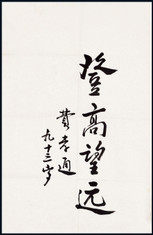 登高望远
费孝通
九十三岁